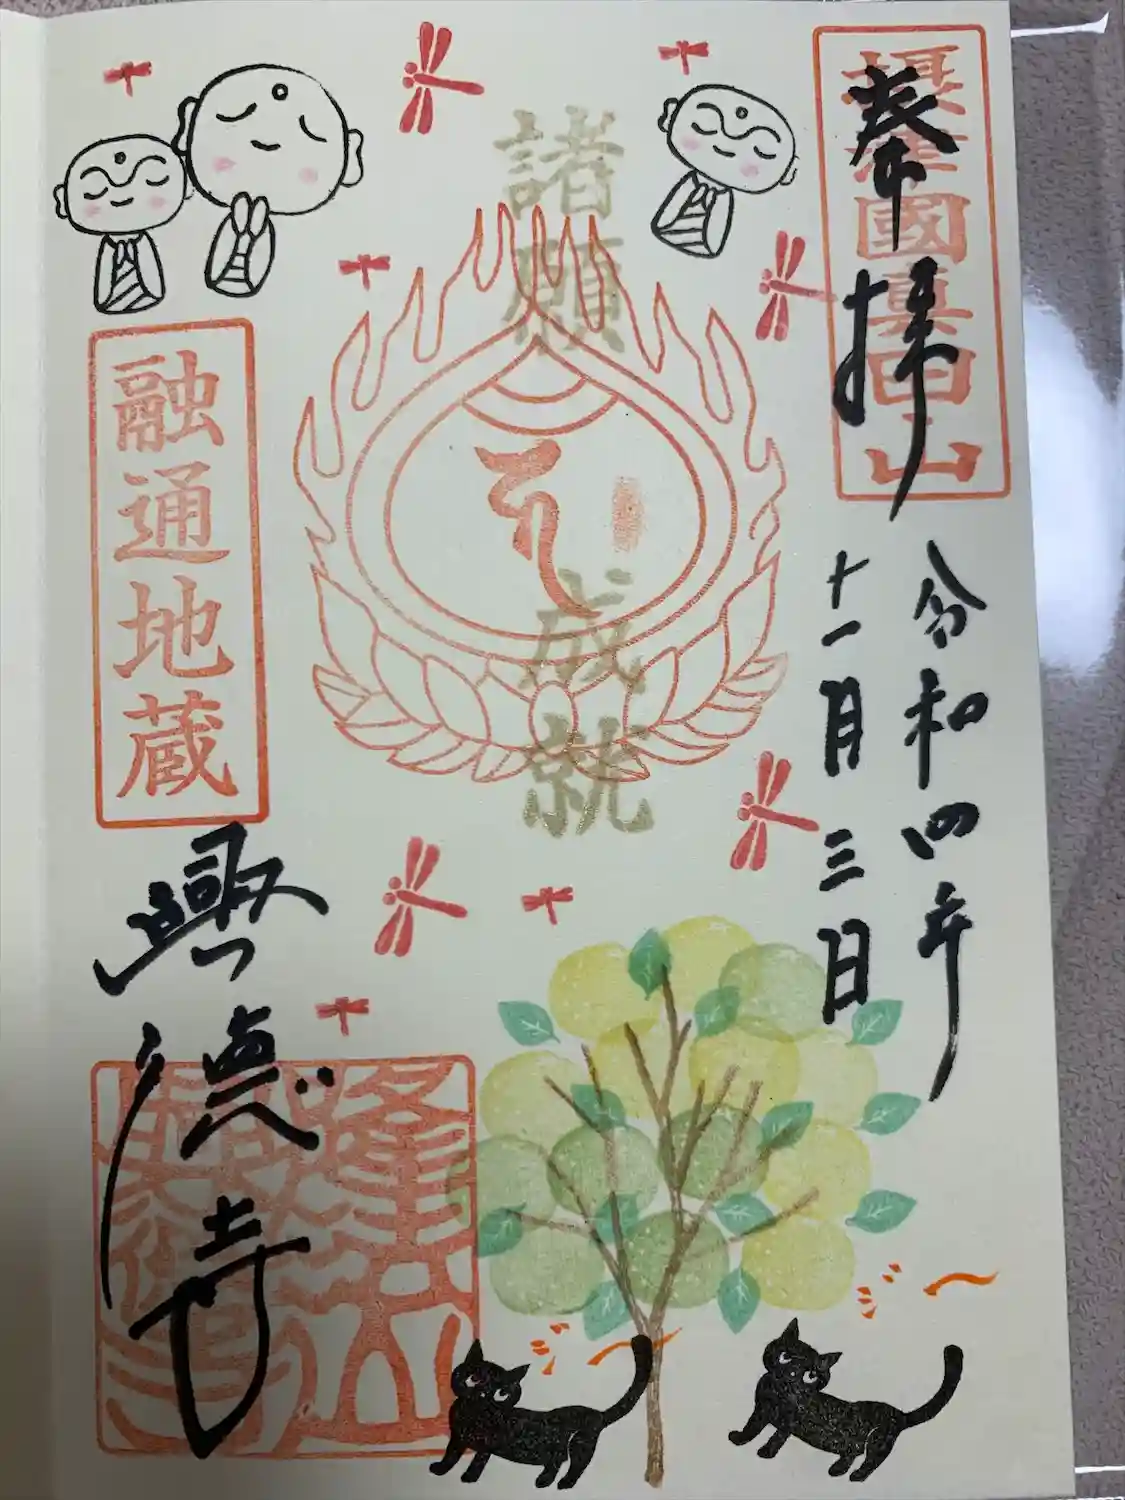 奉拝
摂津國真田山
令和四年
十一月三日
諸願成就
融通地蔵
興徳寺
ジー
ジー